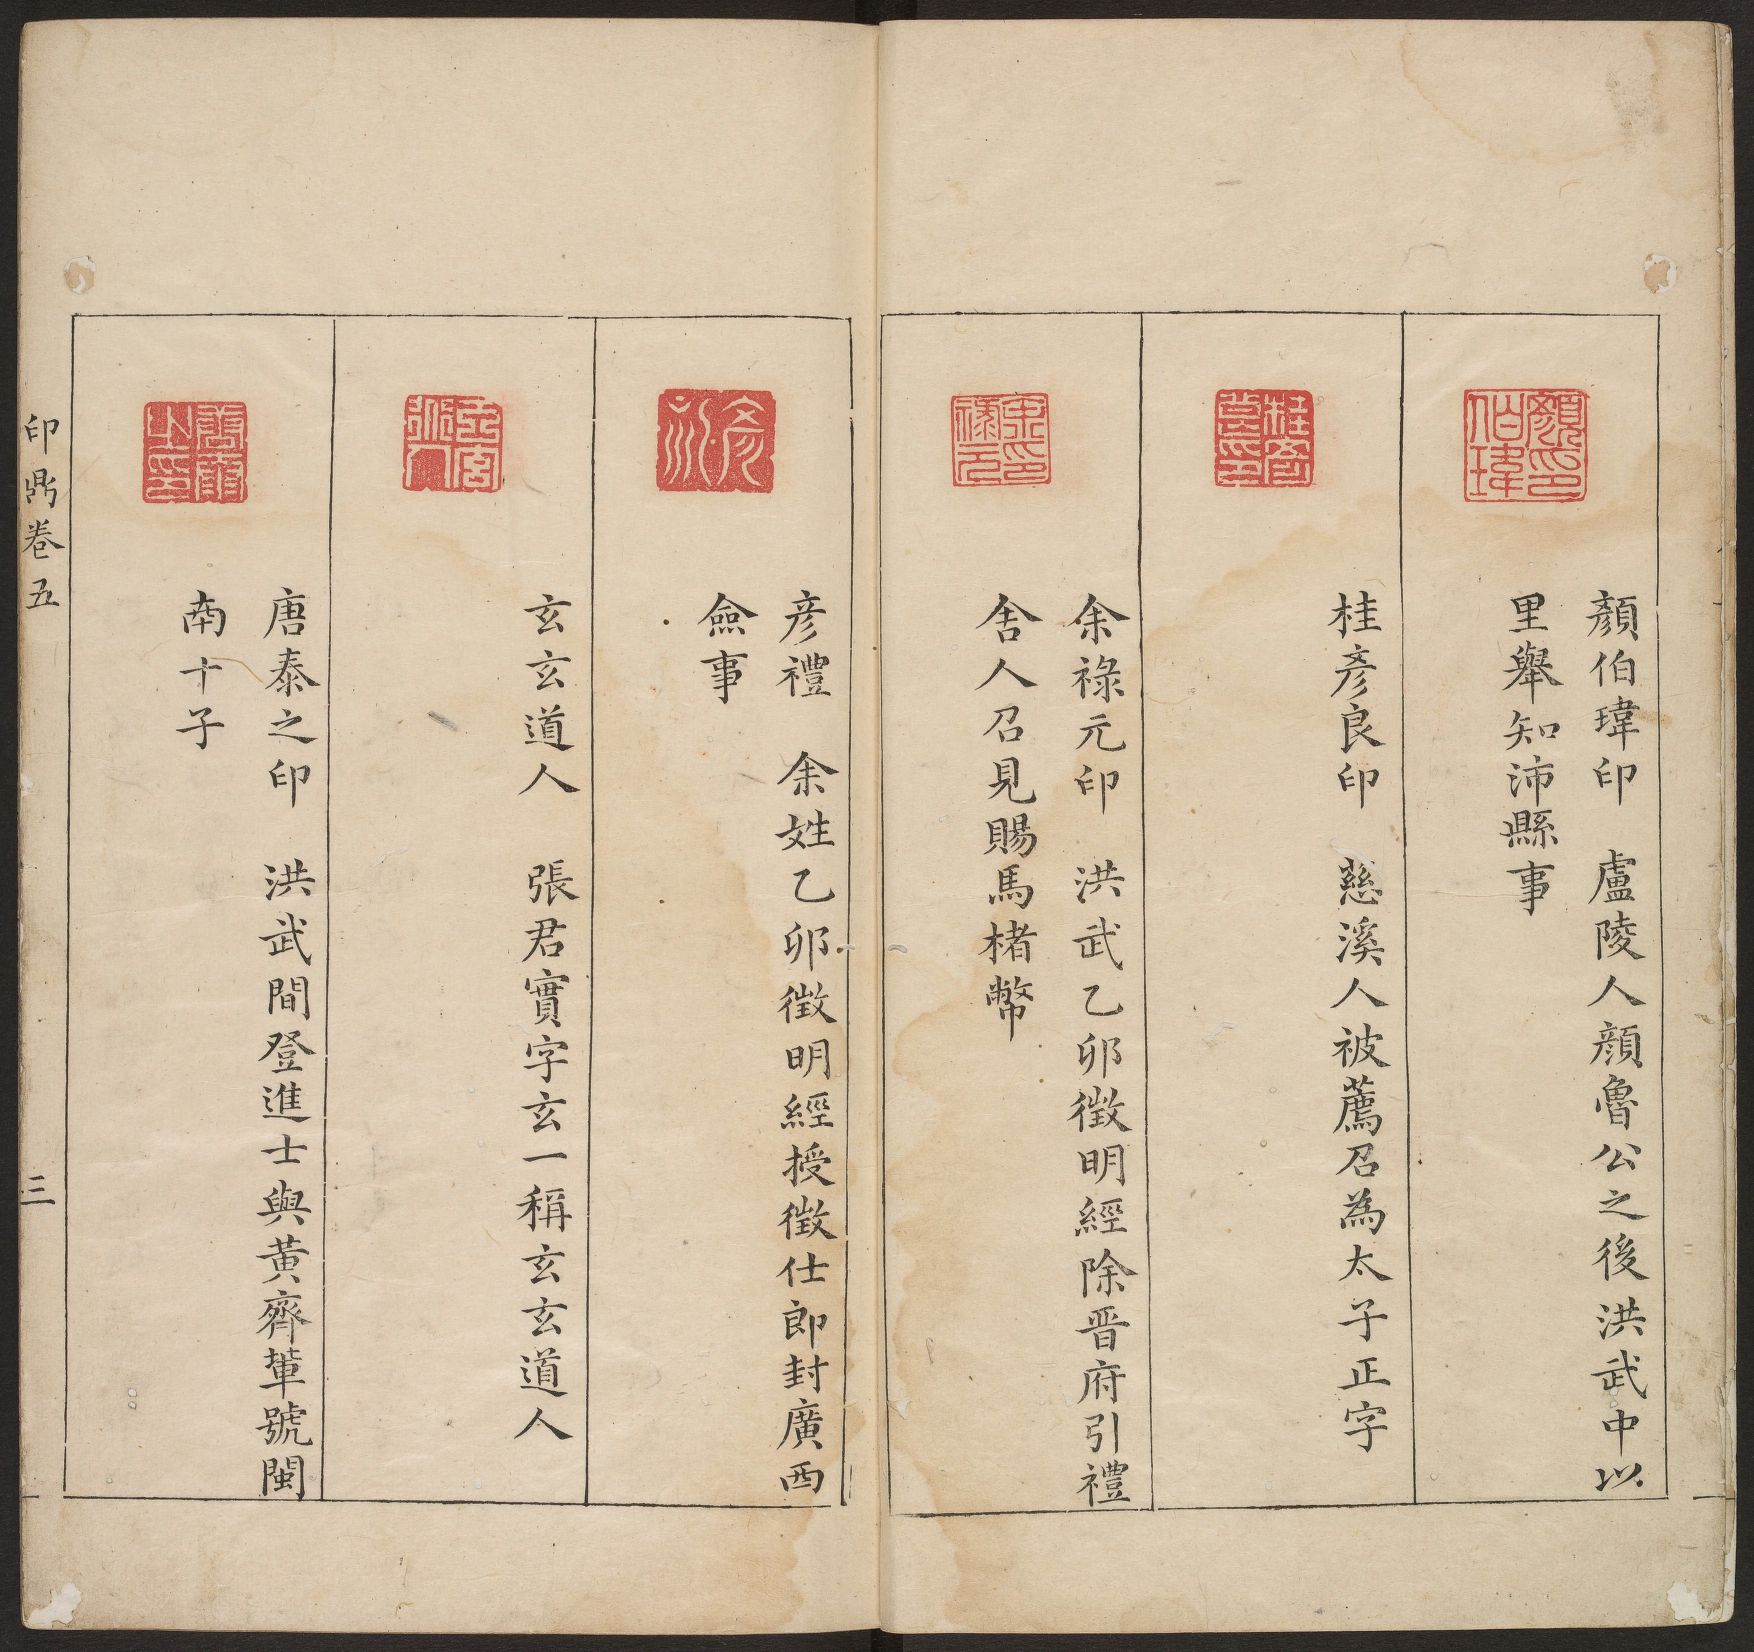 顏伯瑋印　盧陵人顔魯公之後洪武中以
里舉知沛縣事
桂彥良印　慈溪人被薦召為太子正字
余祿元印　洪武乙卯徵明經除晋府引禮
舍人召見賜馬楮幣
彥禮　余姓乙卯徵明經授徵仕郎封廣西
僉事
玄玄道人　張君實字玄一稱玄玄道人
唐泰之印　洪武間登進士與黃齊軰號閩
南十子
印鼎卷五
三